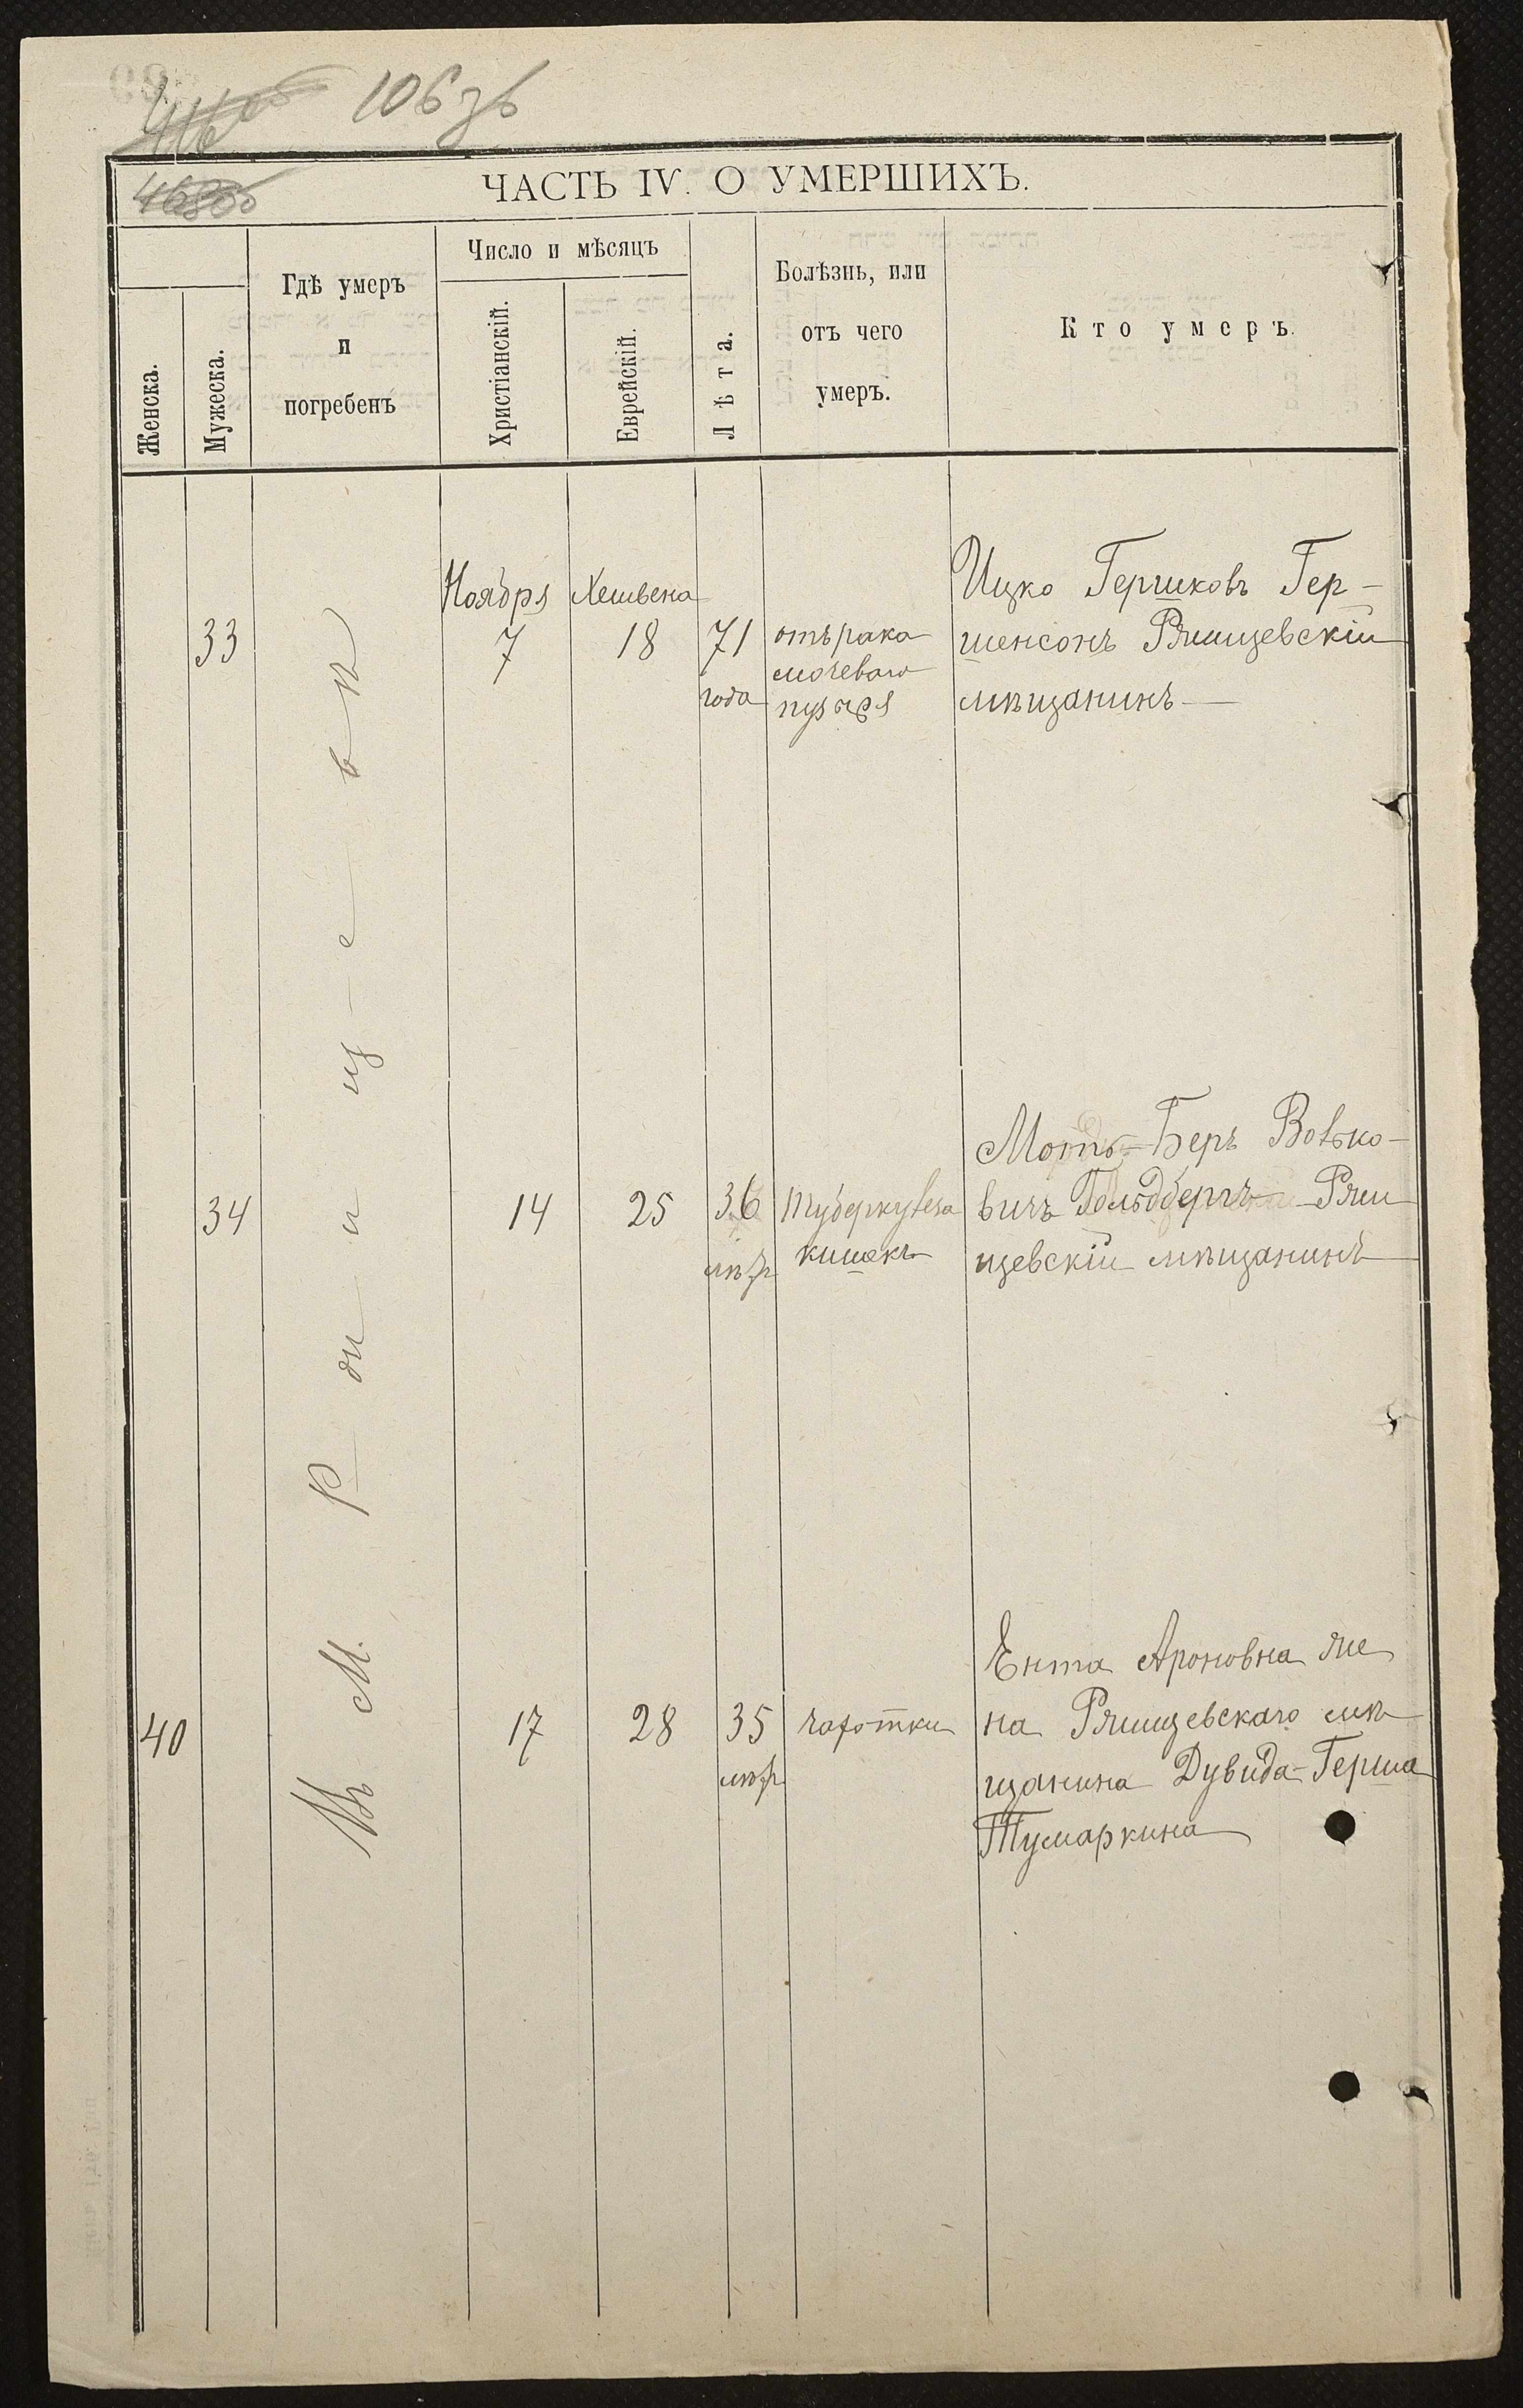 106 зв
ЧАСТЬ IV. О УМЕРШИХЪ.
Женска.
Мужеска.
Гдѣ умеръ
и
погребенъ
Число и мѣсяцъ
Христіанскій.
Еврейскій.
Лѣта.
Болѣзнь, или
отъ чего
умеръ.
Кто умеръ.
Въ М. Ржищевѣ
Ноября Хешвена
33 7 18 71 года
отъ рака
мочеваго
пузыря
Ицко Гершковъ Гер-
шенсонъ Ржищевскій
мѣщанинъ
34 14 25 36 лѣтъ
туберкулеза
кишекъ
Моть-Беръ Вовко-
вичъ Гольдбергъ Ржи
щевскій мѣщанинъ
40 17 28 35 лѣтъ
чахотки
Ента Ароновна же
на Ржищевскаго мѣ
щанина Дувида-Герша
Тумаркина